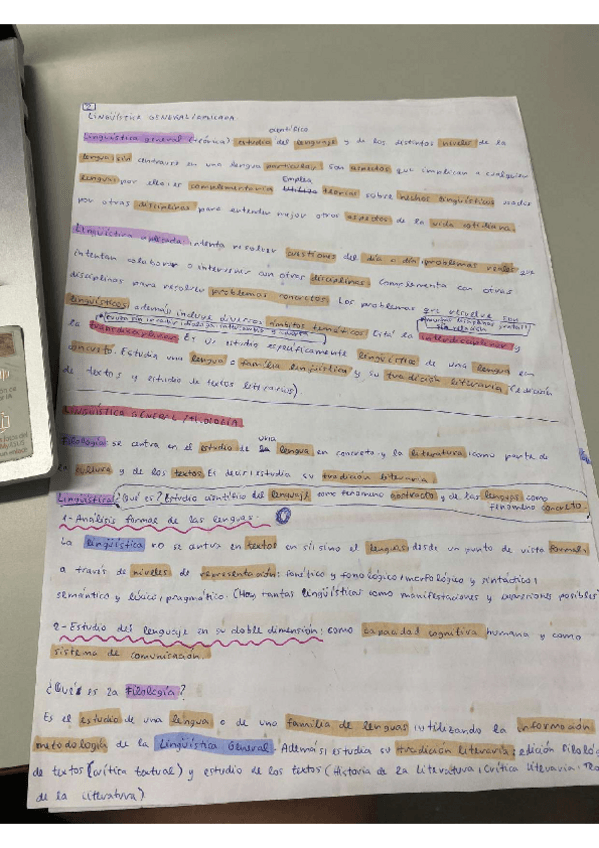 2
LINGÜÍSTICA GENERAL/APLICADA
científico
Lingüística general (teórica) estudio del lenguaje y de los distintos niveles de la
lengua sin centrarse en una lengua particular. Son aspectos que implican a cualquier
Emplea
lengua por ello es complementaria Utiliza teorías sobre hechos lingüísticos usados
por otras disciplinas para entender mejor otros aspectos de la vida cotidiana.
Lingüística aplicada: intenta resolver cuestiones del día a día, problemas reales que
intentan colaborar o interviene con otras disciplinas. Comúnmente con otras
disciplinas para resolver problemas concretos. Los problemas que resuelve son
lingüísticos, además incluye diversos ámbitos temáticos. Está la interdisciplinar y
la transdisciplinar. Es un estudio específicamente lingüístico de una lengua en
concreto. Estudia una lengua o familia lingüística y su tradición literaria (edición
de textos y estudio de textos literarios).
LINGÜÍSTICA GENERAL/FILOLOGÍA
Filología: se centra en el estudio de la una lengua en concreto y la literatura como parte de
la cultura y de los textos. Es decir, estudia su tradición literaria.
Lingüística ¿Qué es? Estudio científico del lenguaje como fenómeno abstracto y de las lenguas como
fenómeno concreto.
1-Análisis formal de las lenguas.
La lingüística no se centra en textos en sí, sino el lenguas desde un punto de vista formal,
a través de niveles de representación: fonético y fonológico, morfológico y sintáctico,
semántico y léxico, pragmático. (Hay tantas lingüísticas como manifestaciones y expresiones posibles
2-Estudio del lenguaje en su doble dimensión: como capacidad cognitiva humana y como
sistema de comunicación.
¿Qué es la Filología?
Es el estudio de una lengua o de una familia de lenguas utilizando la información
metodología de la Lingüística General. Además, estudia su tradición literaria: edición filológ
de textos (crítica textual) y estudio de los textos (Historia de la literatura, Crítica literaria, Teo
de la literatura)